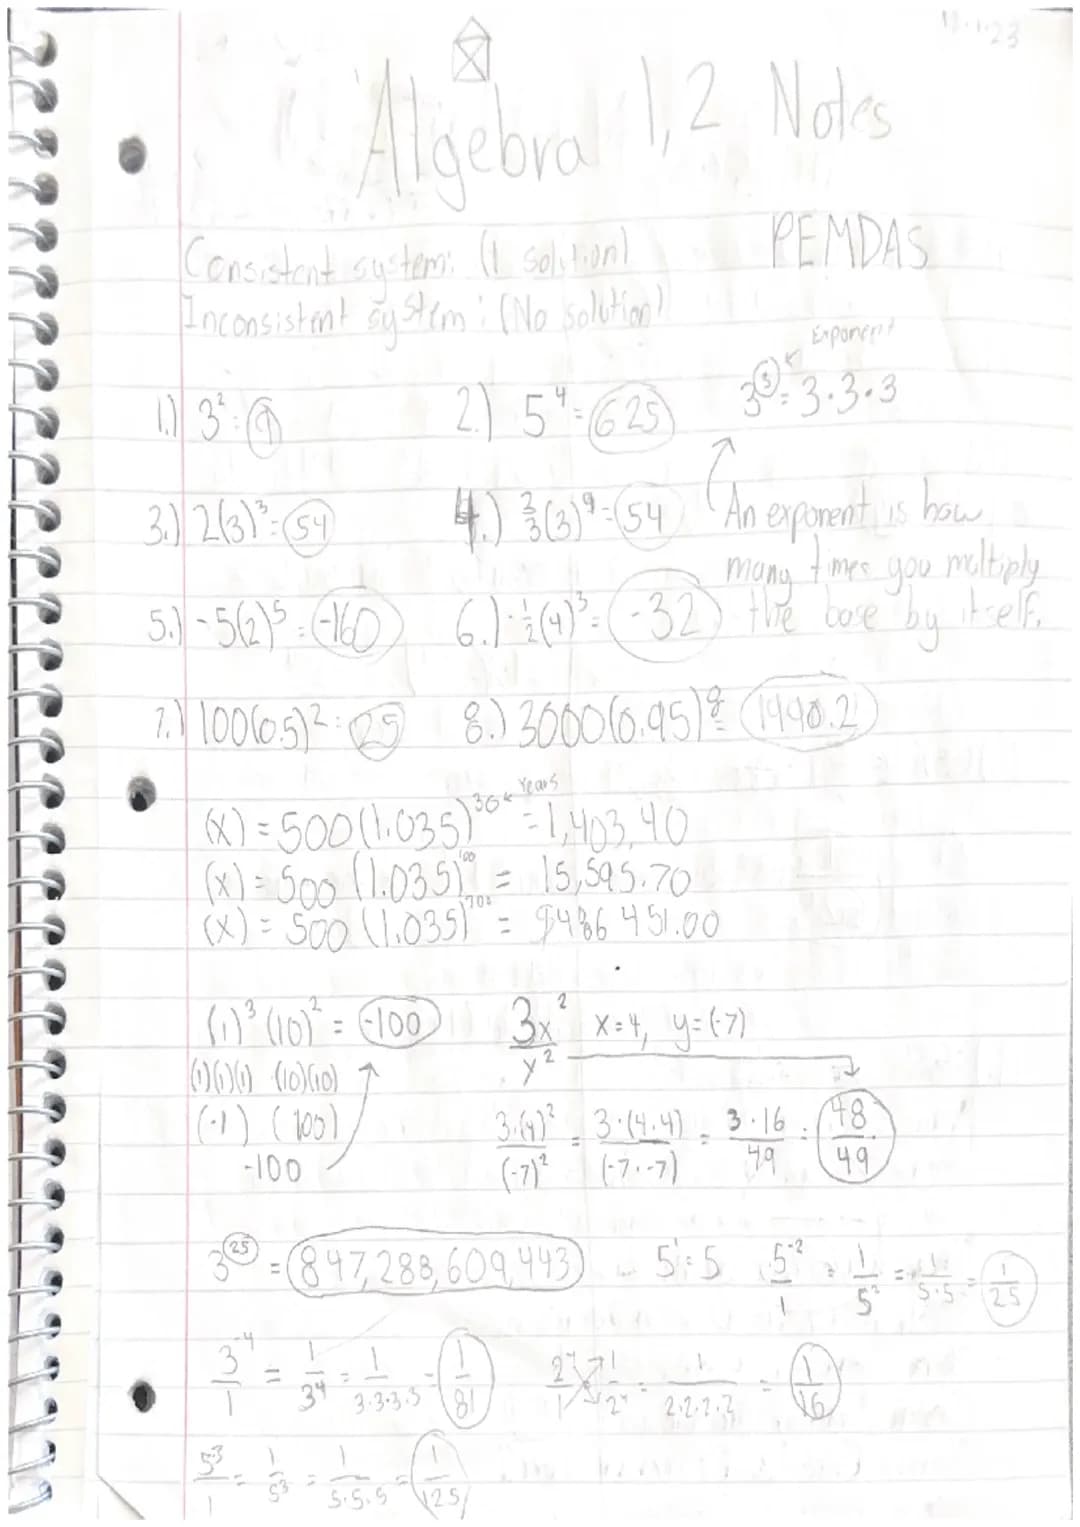 11.1.23
Algebra 1,2 Notes
PEMDAS
Consistent system: (1 solution)
Inconsistent system: (No solution)
Exponent
3³ = 3·3·3
1.) 3² = 9
2.) 5⁴ = 625
An exponent is how
many times you multiply
the base by itself.
3.) 2(3)³ = 54
4.) 2/3(3)⁴ = 54
5.) -5(2)⁵ = -160
6.) -1/2(4)³ = -32
7.) 100(0.5)² = 25
8.) 3000(0.95)⁸ = 1990.2
Years
(x) = 500(1.035)³⁰ = 1,403.40
(x) = 500(1.035)¹⁰⁰ = 15,595.70
(x) = 500(1.035) = 9486 451.00
(1)³ (10)² = -100
(1)(1)(1) (10)(10)
(-1) (100)
-100
3x²/y² x=4, y=(-7)
3·(4)²/(-7)² = 3·(4·4)/(-7·-7) = 3·16/49 = 48/49
3²⁵ = 847,288,609,443
5¹=5 5⁻²/1 = 1/5² = 1/5·5 = 1/25
3⁻⁴/1 = 1/3⁴ = 1/3·3·3·3 = 1/81
2⁴/1 1/2⁴ = 1/2·2·2·2 = 1/16
5⁻³/1 = 1/5³ = 1/5·5·5 = 1/125